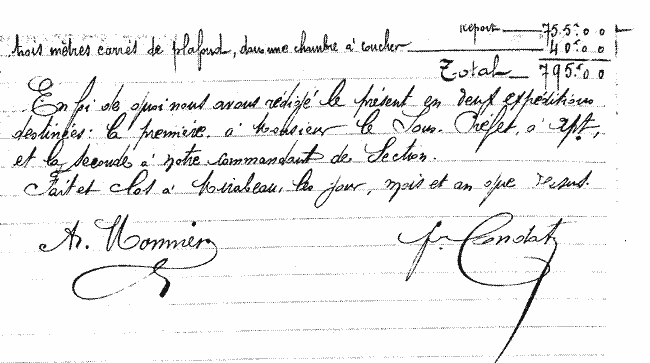 Report 755f00
trois mètres carrés de plafond, dans une chambre à coucher 40f00
Total 795f00
En foi de quoi nous avons rédigé le présent en deux expéditions
destinées: la première à Monsieur le Sous-Préfet, à Apt,
et la seconde à notre Commandant de Section.
Fait et clos à Mirabeau, les jour, mois et an que dessus.
A. Monnier Condat